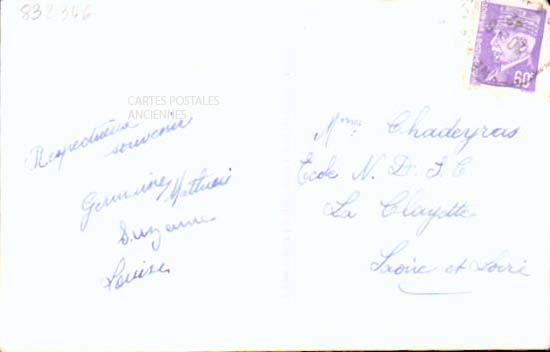 832 346
CARTES POSTALES
ANCIENNES
Respectueux
souvenir
Germaine Mathieu
Suzanne
Louise
Mme Chadeyras
Ecole N. D. J. C
La Clayette
Saône et Loire
60